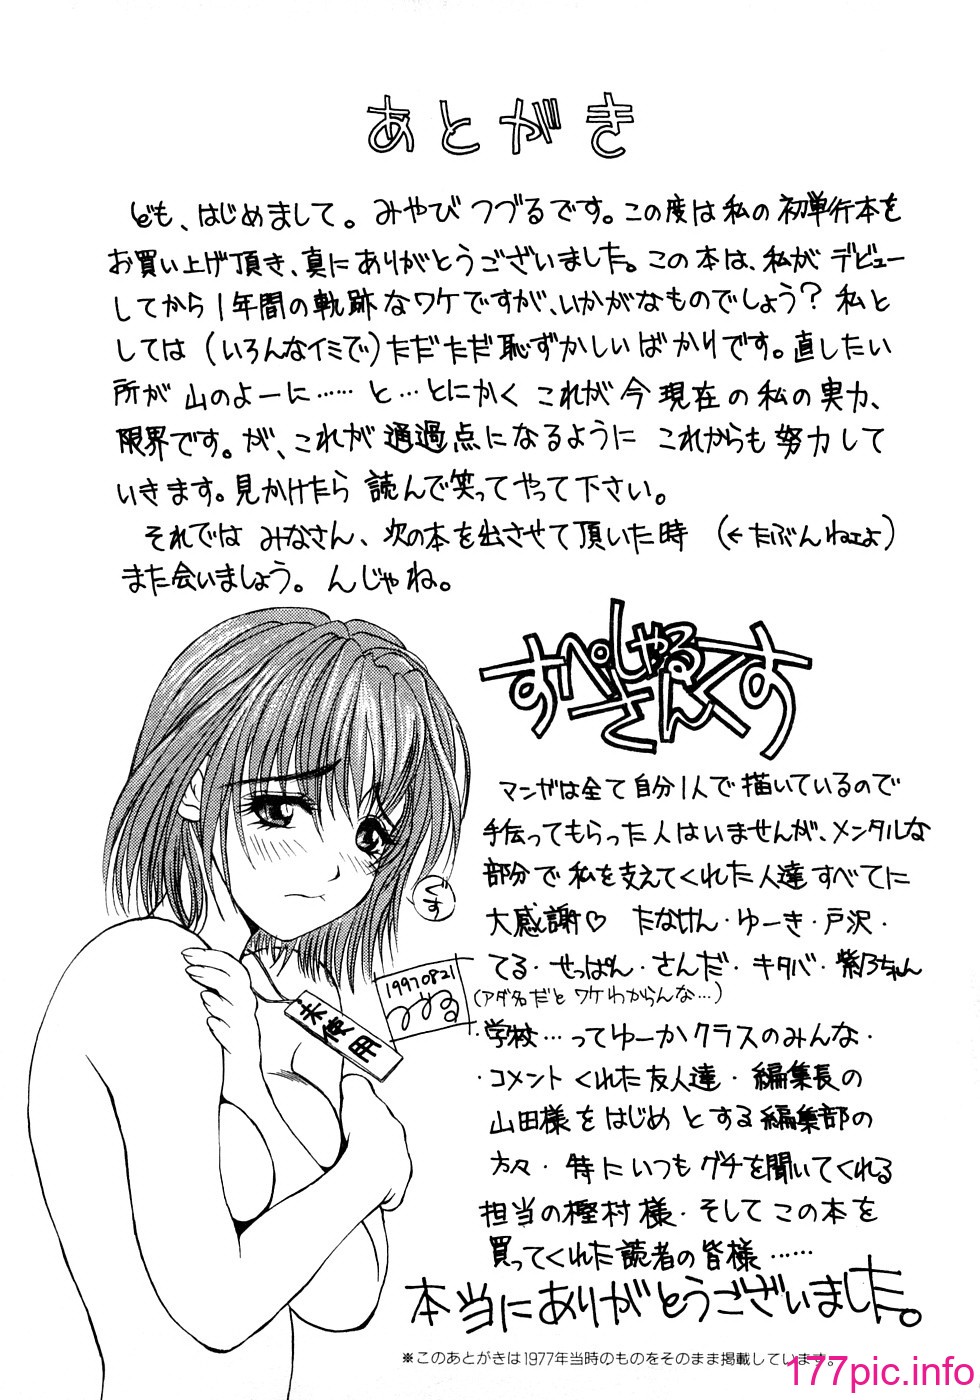 あとがき
ども、はじめまして。みやびつづるです。この度は私の初単行本を
お買い上げ頂き、真にありがとうございました。この本は、私がデビュー
してから1年間の軌跡なワケですが、いかがなものでしょう?私と
しては(いろんなイミで)ただただ恥ずかしいばかりです。直したい
所が山のよーに……と…とにかくこれが今現在の私の実力、
限界です。が、これが通過点になるようにこれからも努力して
いきます。見かけたら読んで笑ってやって下さい。
それではみなさん、次の本を出させて頂いた時(←たぶんねェよ)
また会いましょう。んじゃね。
すぺしゃる
さんくす
マンガは全て自分1人で描いているので
手伝ってもらった人はいませんが、メンタルな
部分で私を支えてくれた人達すべてに
大感謝♡ たなけん・ゆーき・戸沢・
てる・せっぱん・さんだ・キタバ・紫乃ちゃん
(アダ名だとワケわからんな…)
・学校…ってゆーかクラスのみんな・
・コメントくれた友人達・編集長の
山田様をはじめとする編集部の
方々・特にいつもグチを聞いてくれる
担当の樫村様・そしてこの本を
買ってくれた読者の皆様……
本当にありがとうございました。
ぐす
19970821
つづる
未使用
※このあとがきは1977年当時のものをそのまま掲載しています。
177pic.info